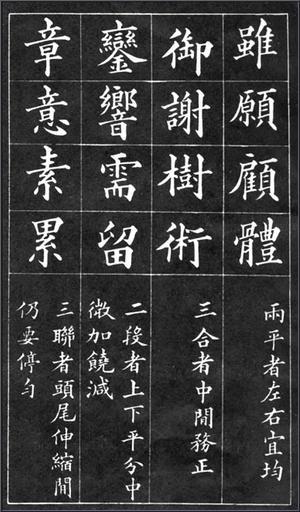 雖願顧體
兩平者左右宜均
御謝樹術
三合者中閒務正
鑾響需留
二段者上下平分中
微加饒減
章意素累
三聯者頭尾伸縮閒
仍要停勻